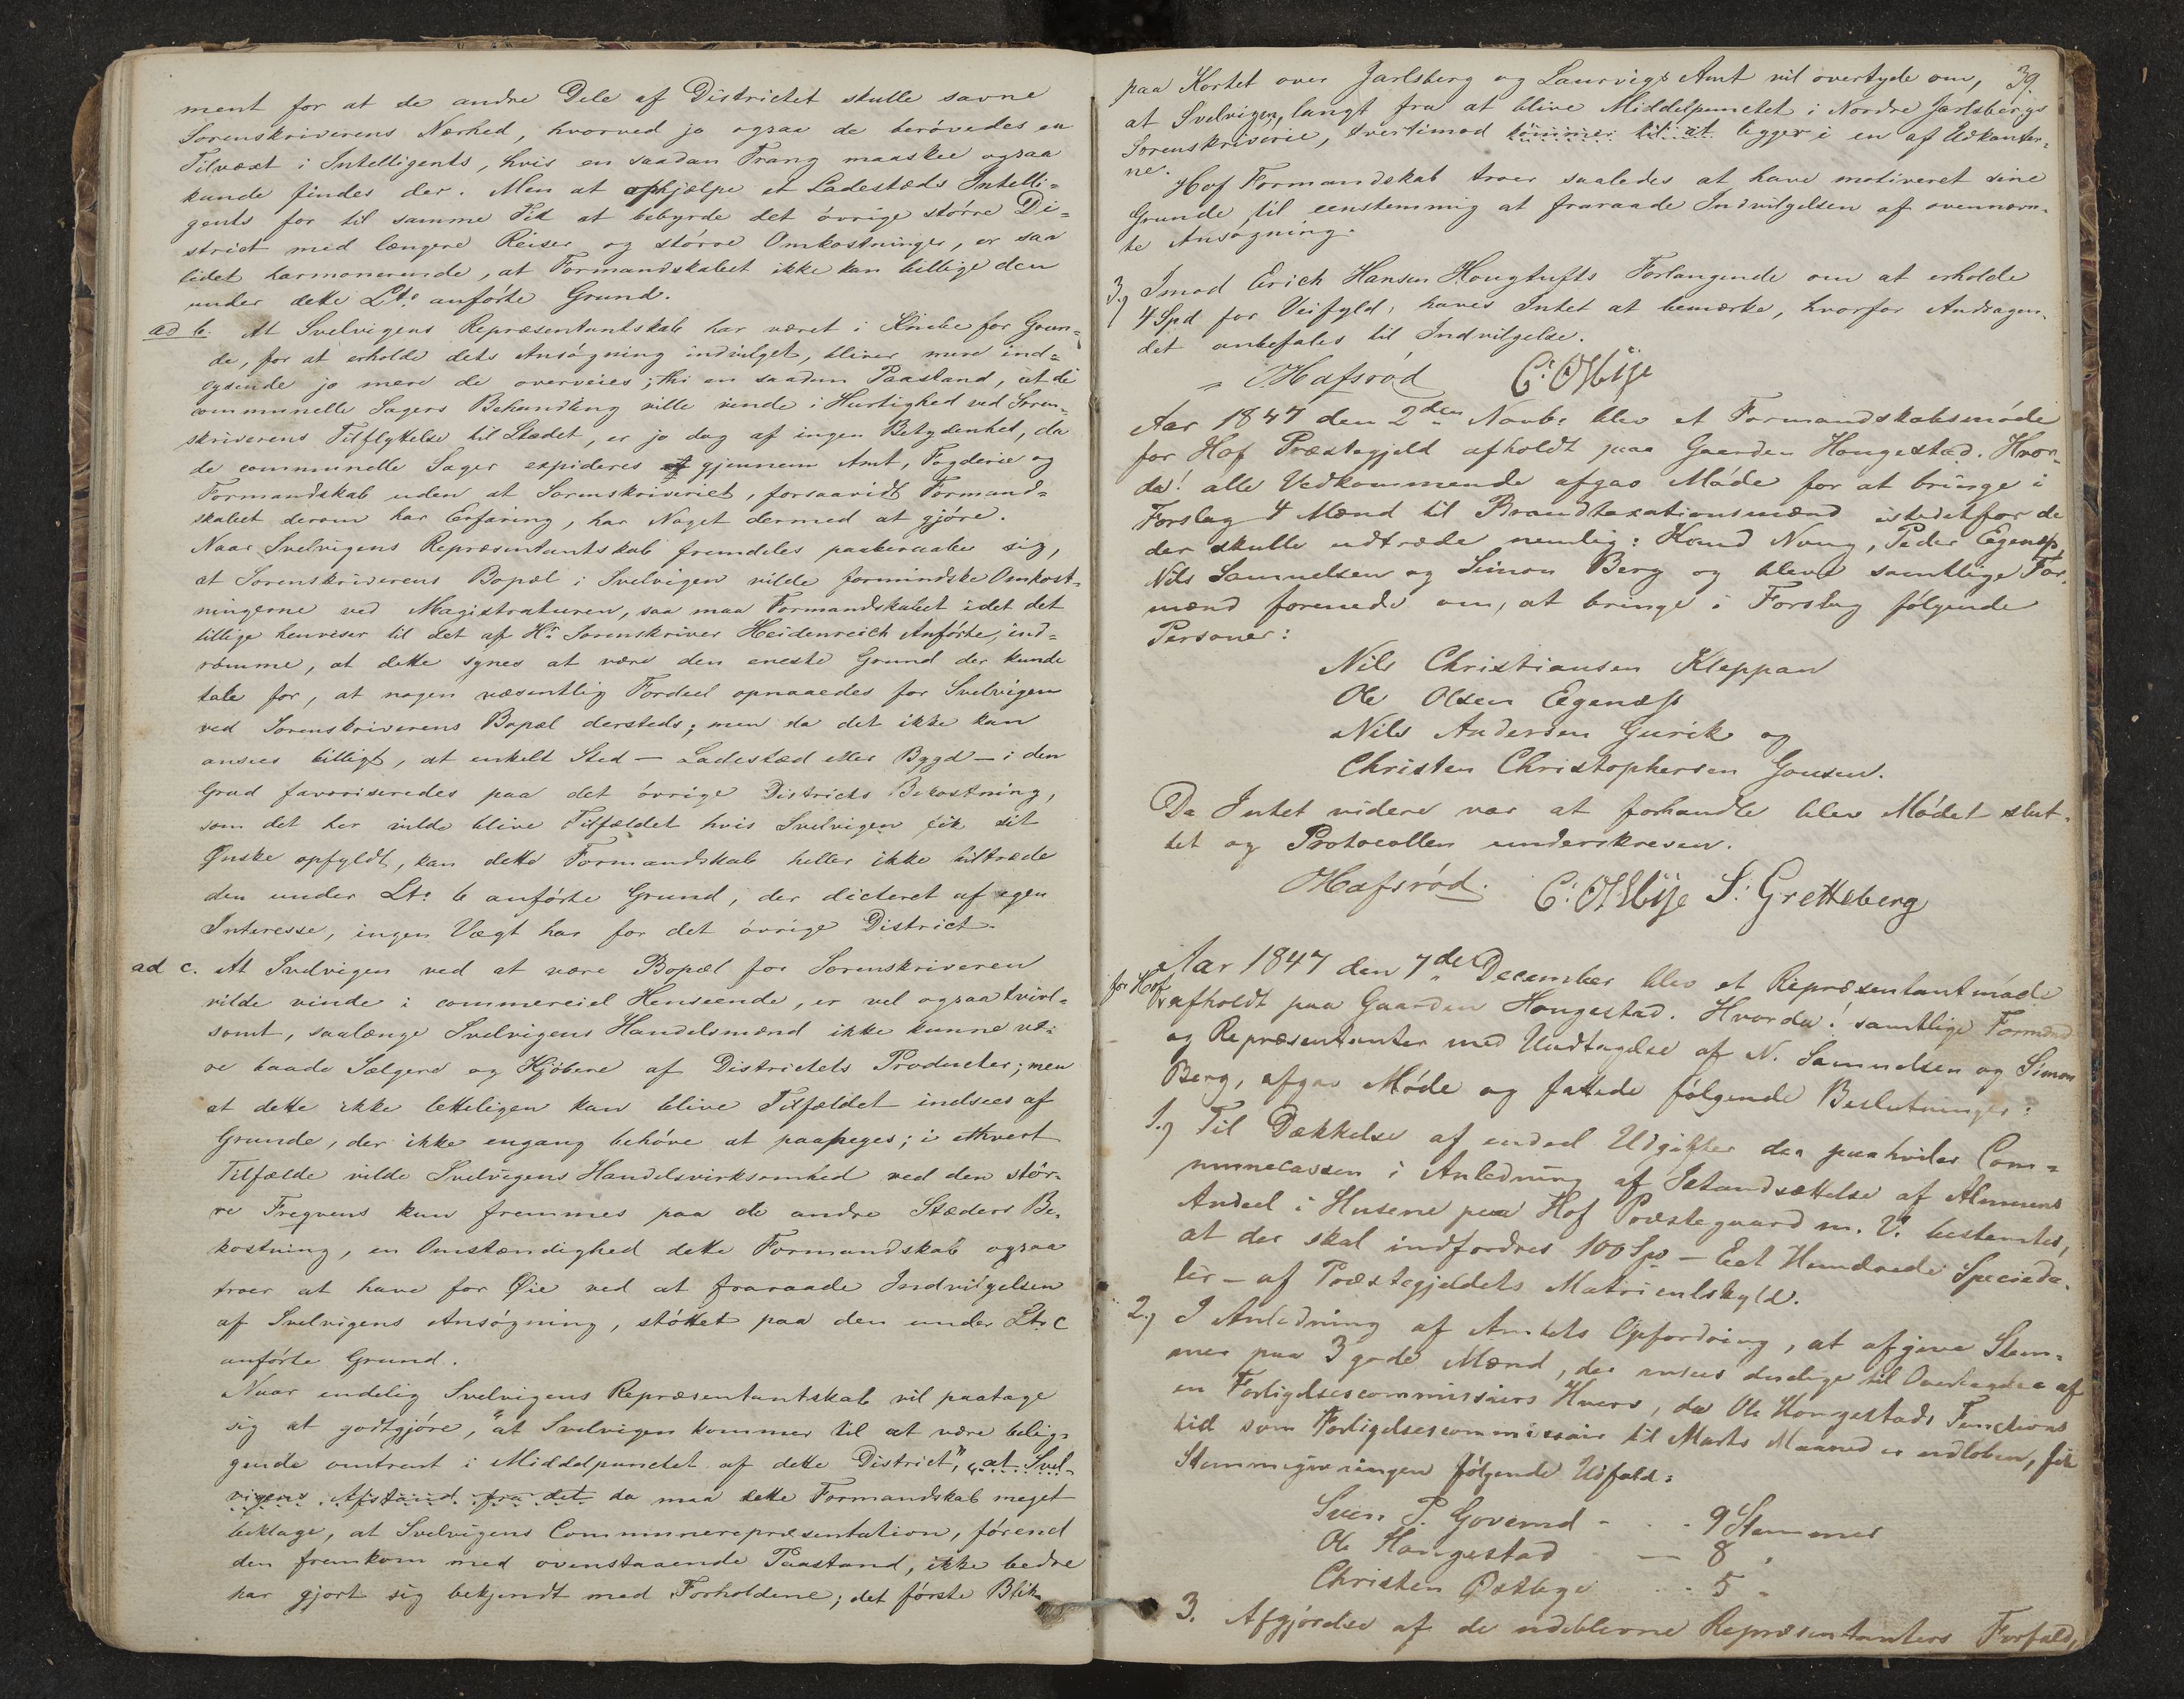 ment for at de andre Dele af Districtet skulle savne
Sorenskriverens Nærhed, hvorved jo ogsaa de berövedes en
Tilvæxt i Intelligents, hvis en saadan Trang maaskee ogsaa
kunde findes der. Men at ophjælpe et Ladestæds Intelli=
gents for til samme Tid at bebyrde det övrige större Di=
strict med længere Reiser og större Omkostninger, er saa
lidet harmonerende, at Formandskabet ikke kan billige den
under dette Ltr. anförte Grund.
ad b. At Svelvigens Repræsentantskab har været i Knibe for Grun=
de, for at erholde dets Ansögning indvilget, bliver mere ind=
lysende jo mere de overveies; thi en saadan Paastand, at de
communelle Sagers Behandling ville vinde i Hurtighed ved Soren=
skriverens Tilflyttelse til Stædet, er jo dog af ingen Betydenhet, da
de communelle Sager expideres gjennem Amt, Fogderie og
Formandskab uden at Sorenskriveriet, forsaavidt Formand=
skabet derom har Erfaring, har Noget dermed at gjöre.
Naar Svelvigens Repræsentantskab fremdeles paaberaaber sig,
at Sorenskriverens Bopæl i Svelvigen vilde formindske Omkost=
ningerne ved Magistraturen, saa maa Formandskabet idet det
tillige henviser til det af Hr Sorenskriver Heidenreich Anförte, ind=
römme, at dette synes at være den eneste Grund der kunde
tale for, at nogen væsentlig Fordeel opnaaedes for Svelvigen
ved Sorenskriverens Bopæl dersteds; men da det ikke kan
ansees billigt, at enkelt Sted — Ladestæd eller Bygd — i den
Grad favoriseredes paa det övrige Districts Bekostning,
som det her vilde blive Tilfældet hvis Svelvigen fik sit
Ønske opfyldt, kan dette Formandskab heller ikke tiltræde
den under Ltr. b anförte Grund, der dicteret af egen
Interesse, ingen Vægt har for det övrige District.
ad c. At Svelvigen ved at være Bopæl for Sorenskriveren
vilde vinde i commerciel Henseende, er vel ogsaa tvivl=
somt, saalænge Svelvigens Handelsmænd ikke kunne væ=
re baade Sælgere og Kjöbere af Districtets Producter; men
at dette ikke letteligen kan blive Tilfældet indsees af
Grunde, der ikke engang behöve at paapeges; i ethvert
Tilfælde vilde Svelvigens Handelsvirksomhed ved den stör=
re Freqvens kun fremmes paa de andre Stæders Be=
kostning, en Omstændighed dette Formandskab ogsaa
troer at have for Øie ved at fraraade Indvilgelsen
af Svelvigens Ansögning, stöttet paa den under Ltr. c
anförte Grund.
Naar endelig Svelvigens Repræsentantskab vil paatage
sig at godtgjöre, "at Svelvigen kommer til at være belig=
gende omtrent i Middelpunctet af dette District", at Svel=
vigens Afstand fra det da maa dette Formandskab meget
beklage, at Svelvigens Communerepræsentation, förend
den fremkom med ovenstaaende Paastand, ikke bedre
har gjort sig bekjendt med Forholdene; det förste Blik
39
paa Kortet over Jarlsberg og Laurvigs Amt vil overtyde om,
at Svelvigen, langt fra at blive Middelpunctet i Nordre Jarlsbergs
Sorenskriverie, tvertimod kommer til at ligger i en af Udkanter=
ne.
Hof Formandskab troer saaledes at have motiveret sine
Grunde til eenstemmig at fraraade Indvilgelsen af ovennævn=
te Ansögning.
3.) Imod Erich Hansen Hougtufts Forlangende om at erholde
4 Spd for Veifyld, haves Intet at bemærke, hvorfor Andragen=
det anbefales til Indvilgelse.
Hafsröd
Aar 1847 den 2den Novbr blev et Formandskabsmöde
for Hof Præstegjeld afholdt paa Gaarden Hougestad. Hvor=
da! alle Vedkommende afgav Möde for at bringe i
Forslag 4 Mænd til Brandtaxationsmænd istedetfor de
der skulle udtræde nemlig: Knud Noug, Peder Egenæss,
Nils Samuelsen og Simon Berg og bleve samtlige For=
mænd forenede om, at bringe i Forslag fölgende
Personer:
Nils Christiansen Kleppan
Ole Olsen Egenæss
Nils Andersen Gurik og
Christen Christophersen Gousen.
Da Intet videre var at forhandle blev Mödet slut=
tet og Protocollen underskreven.
Hafsröd. S. Gretteberg
Aar 1847 den 7de December blev et Repræsentantmöde
for Hof afholdt paa Gaarden Hougestad. Hvorda! samtlige Formænd
og Repræsentanter med Undtagelse af N. Samuelsen og Simon
Berg, afgav Möde og fattede fölgende Beslutninger:
1.) Til Dækkelse af endeel Udgifter der paahviler Com=
munecassen i Anledning af Istandsættelse af Almuens
Andeel i Husene paa Hof Præstegaard m. V. bestemtes,
at der skal indfordres 100 Spd — Eet Hundrede Specieda=
ler — af Præstegjeldets Matriculskyld.
2.) I Anledning af Amtets Opfordring, at afgive Stem=
mer paa 3 gode Mænd, der ansees duelige til Overtagelse af
en Forligelsescommissairs Hverv, da Ole Hougestads Functions
tid som Forligelsescommissair til Marts Maaned er udloben, fik
Stemmegivningen fölgende Udfald:
Sven P. Goverud - . . 9 Stemmer
Ole Hougestad — 8 "
Christen Østbye . . 5 "
3. Afgjörelse af de udeblevne Repræsentanters Forfald,